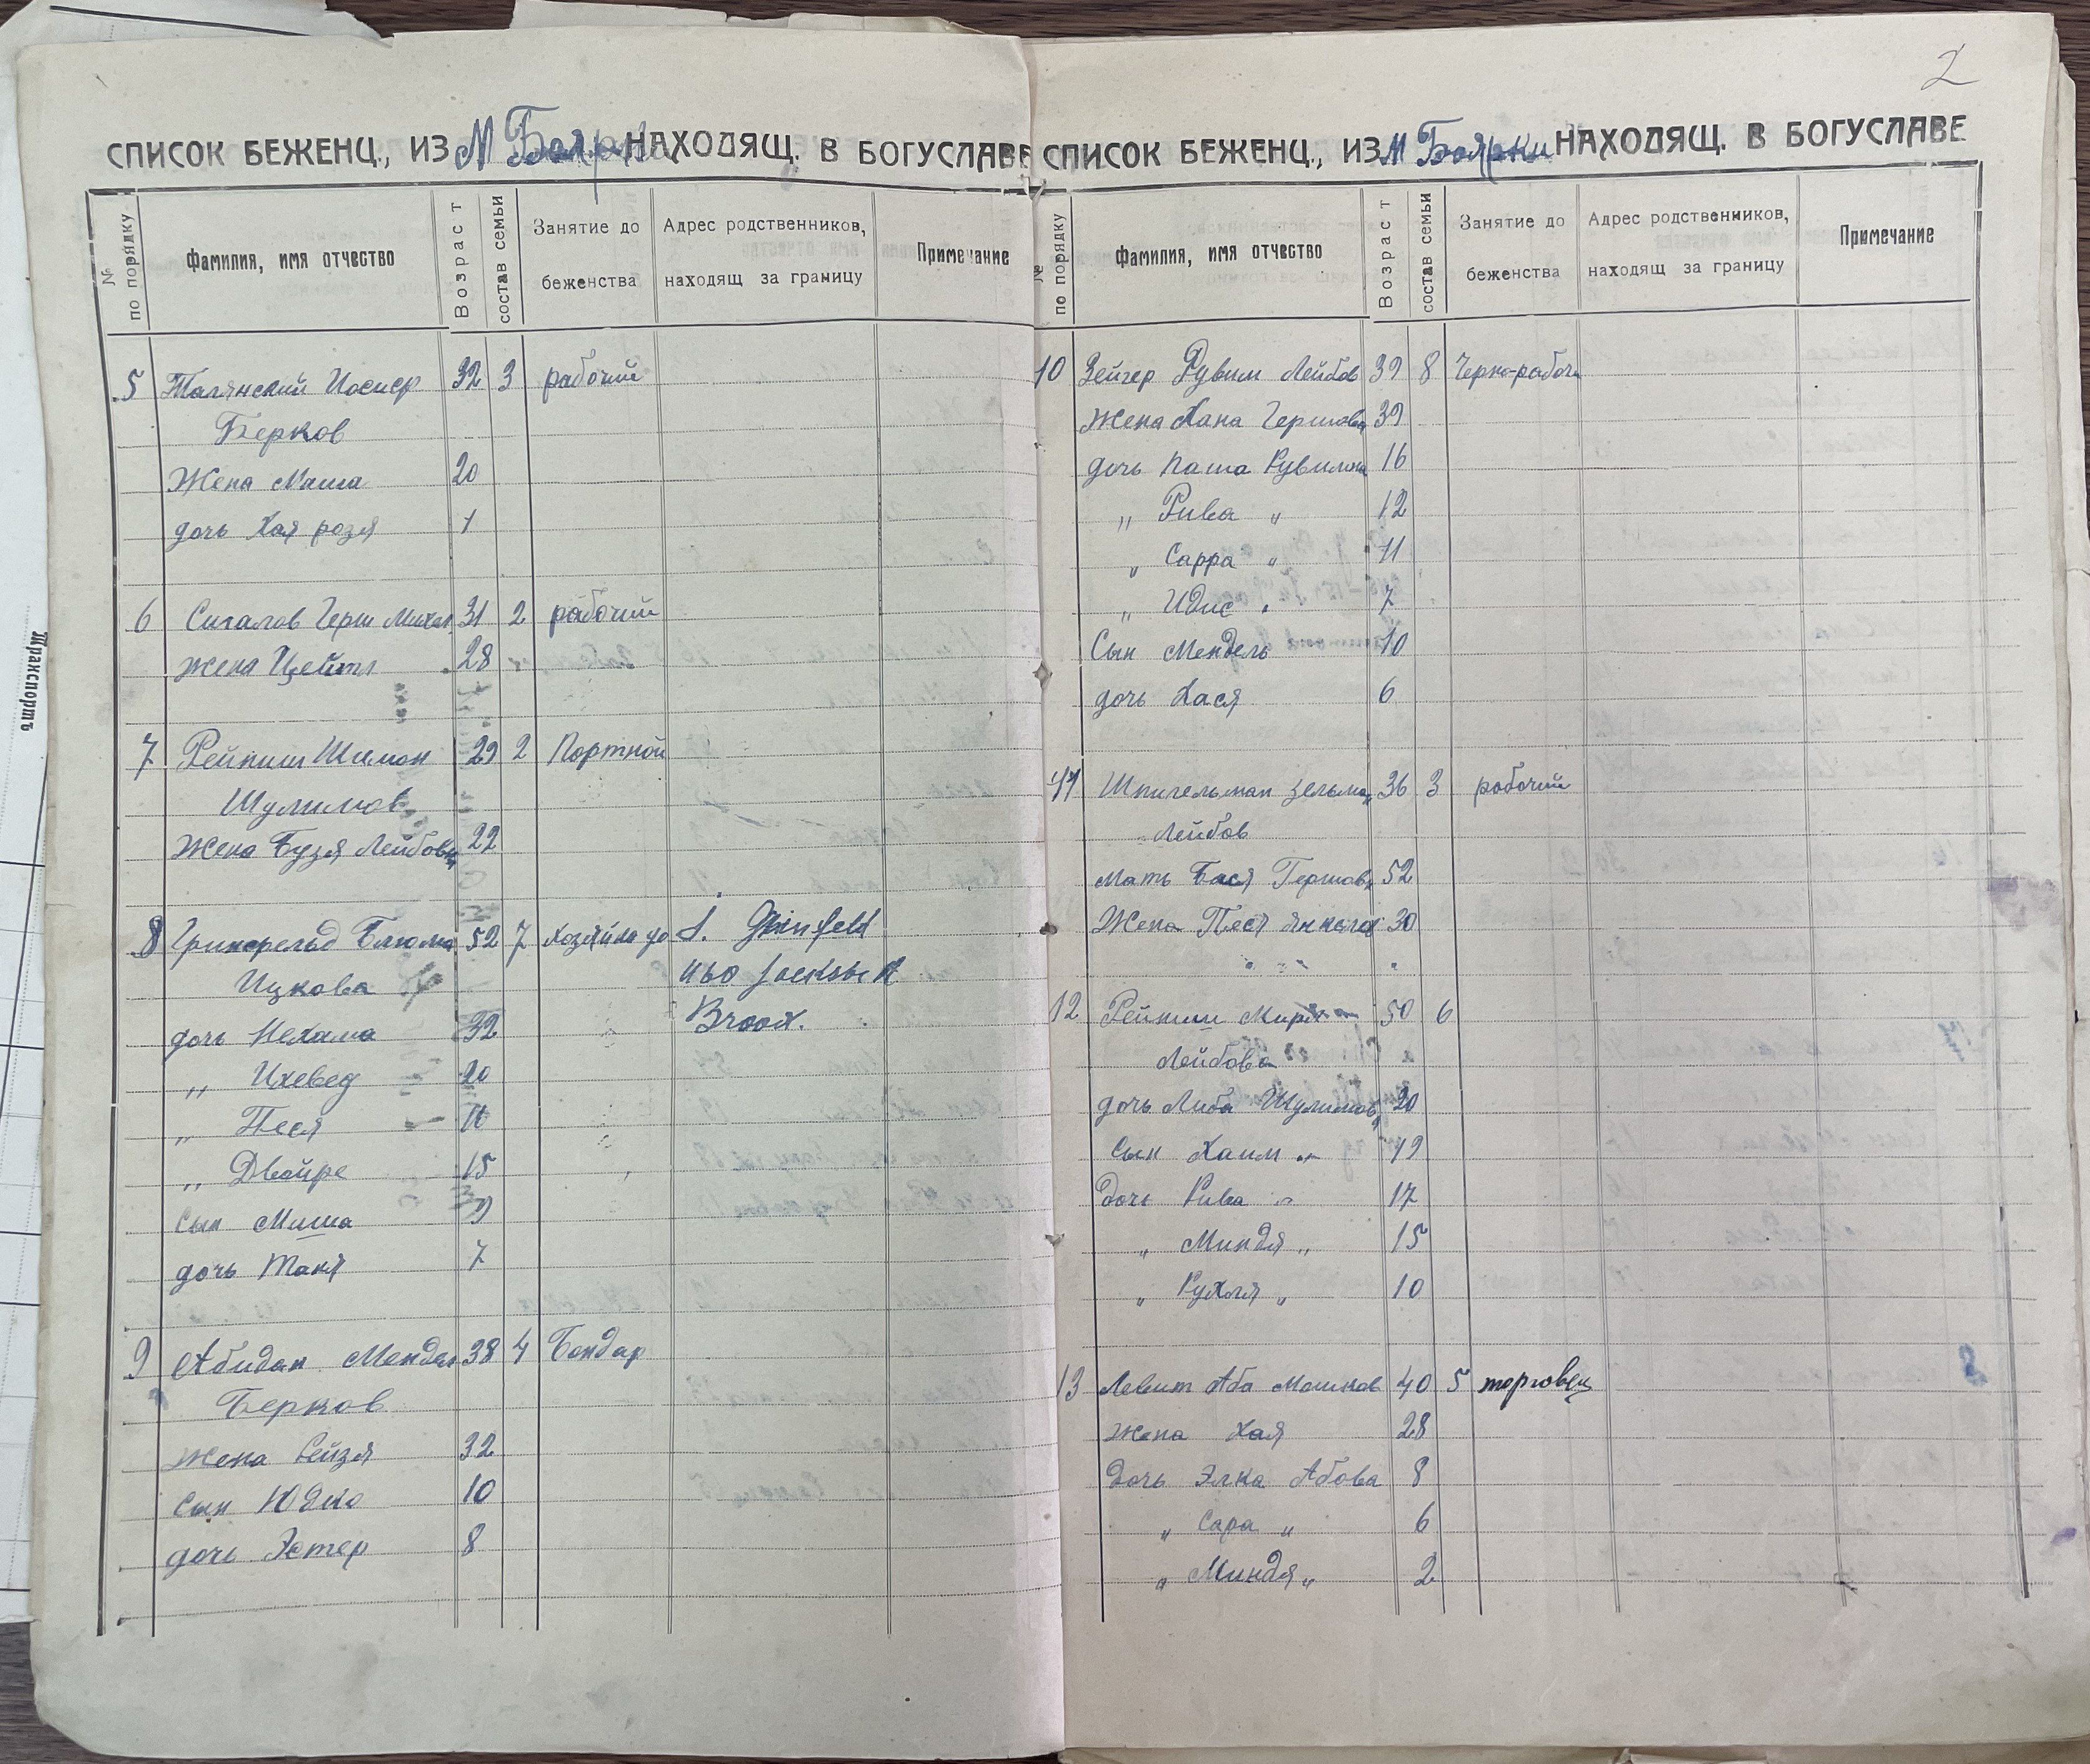 2
СПИСОК БЕЖЕНЦ., ИЗ М Боярки НАХОДЯЩ. В БОГУСЛАВЕ
№ по порядку
Фамилия, имя отчество
Возраст
состав семьи
Занятие до беженства
Адрес родственников, находящ за границу
Примечание
5 Талянский Иосиф 32 3 рабочий
Берков
Жена Маша 20
дочь Хая розя 1
6 Сигалов Герш Михел. 31 2 рабочий
жена Цейтл 28
7 Рейпиш Шимон 29 2 Портной
Шулимов
Жена Бузя Лейбовн 22
8 Гринфельд Блюма 52 7 хозяйка до S. Grinfeld
Ицкова 460
дочь Нехама 32
„ Ихевед 20
„ Песя
„ Двойре 15
сын Миша 9
дочь Таня 7
9 Абидан Мендел 38 4 Бондар
Берков
жена Рейзя 32
сын Юдко 10
дочь Эстер 8
СПИСОК БЕЖЕНЦ., ИЗ М Боярки НАХОДЯЩ. В БОГУСЛАВЕ
№ по порядку
Фамилия, имя отчество
Возраст
состав семьи
Занятие до беженства
Адрес родственников, находящ за границу
Примечание
10 Зейгер Рувим Лейбов 39 8 Черно-рабоч
Жена Хана Гершова 39
дочь Паша Рувимна 16
„ Рива „ 12
„ Сарра „ 11
„ Идис „ 7
Сын Мендель 10
дочь Хася 6
11 Шпигельман Зельма 36 3 рабочий
Лейбов
Мать Бася Гершов 52
Жена Песя 30
12 Рейпиш 50 6
Лейбова
дочь Либа Шулимов 20
сын Хаим „ 19
дочь Рива „ 17
„ Миндя „ 15
„ Рухля „ 10
13 Левит Аба Мошков 40 5 торговец
жена Хая 28
дочь Элка Абова 8
„ Сара „ 6
„ Миндя „ 2
Транспортъ